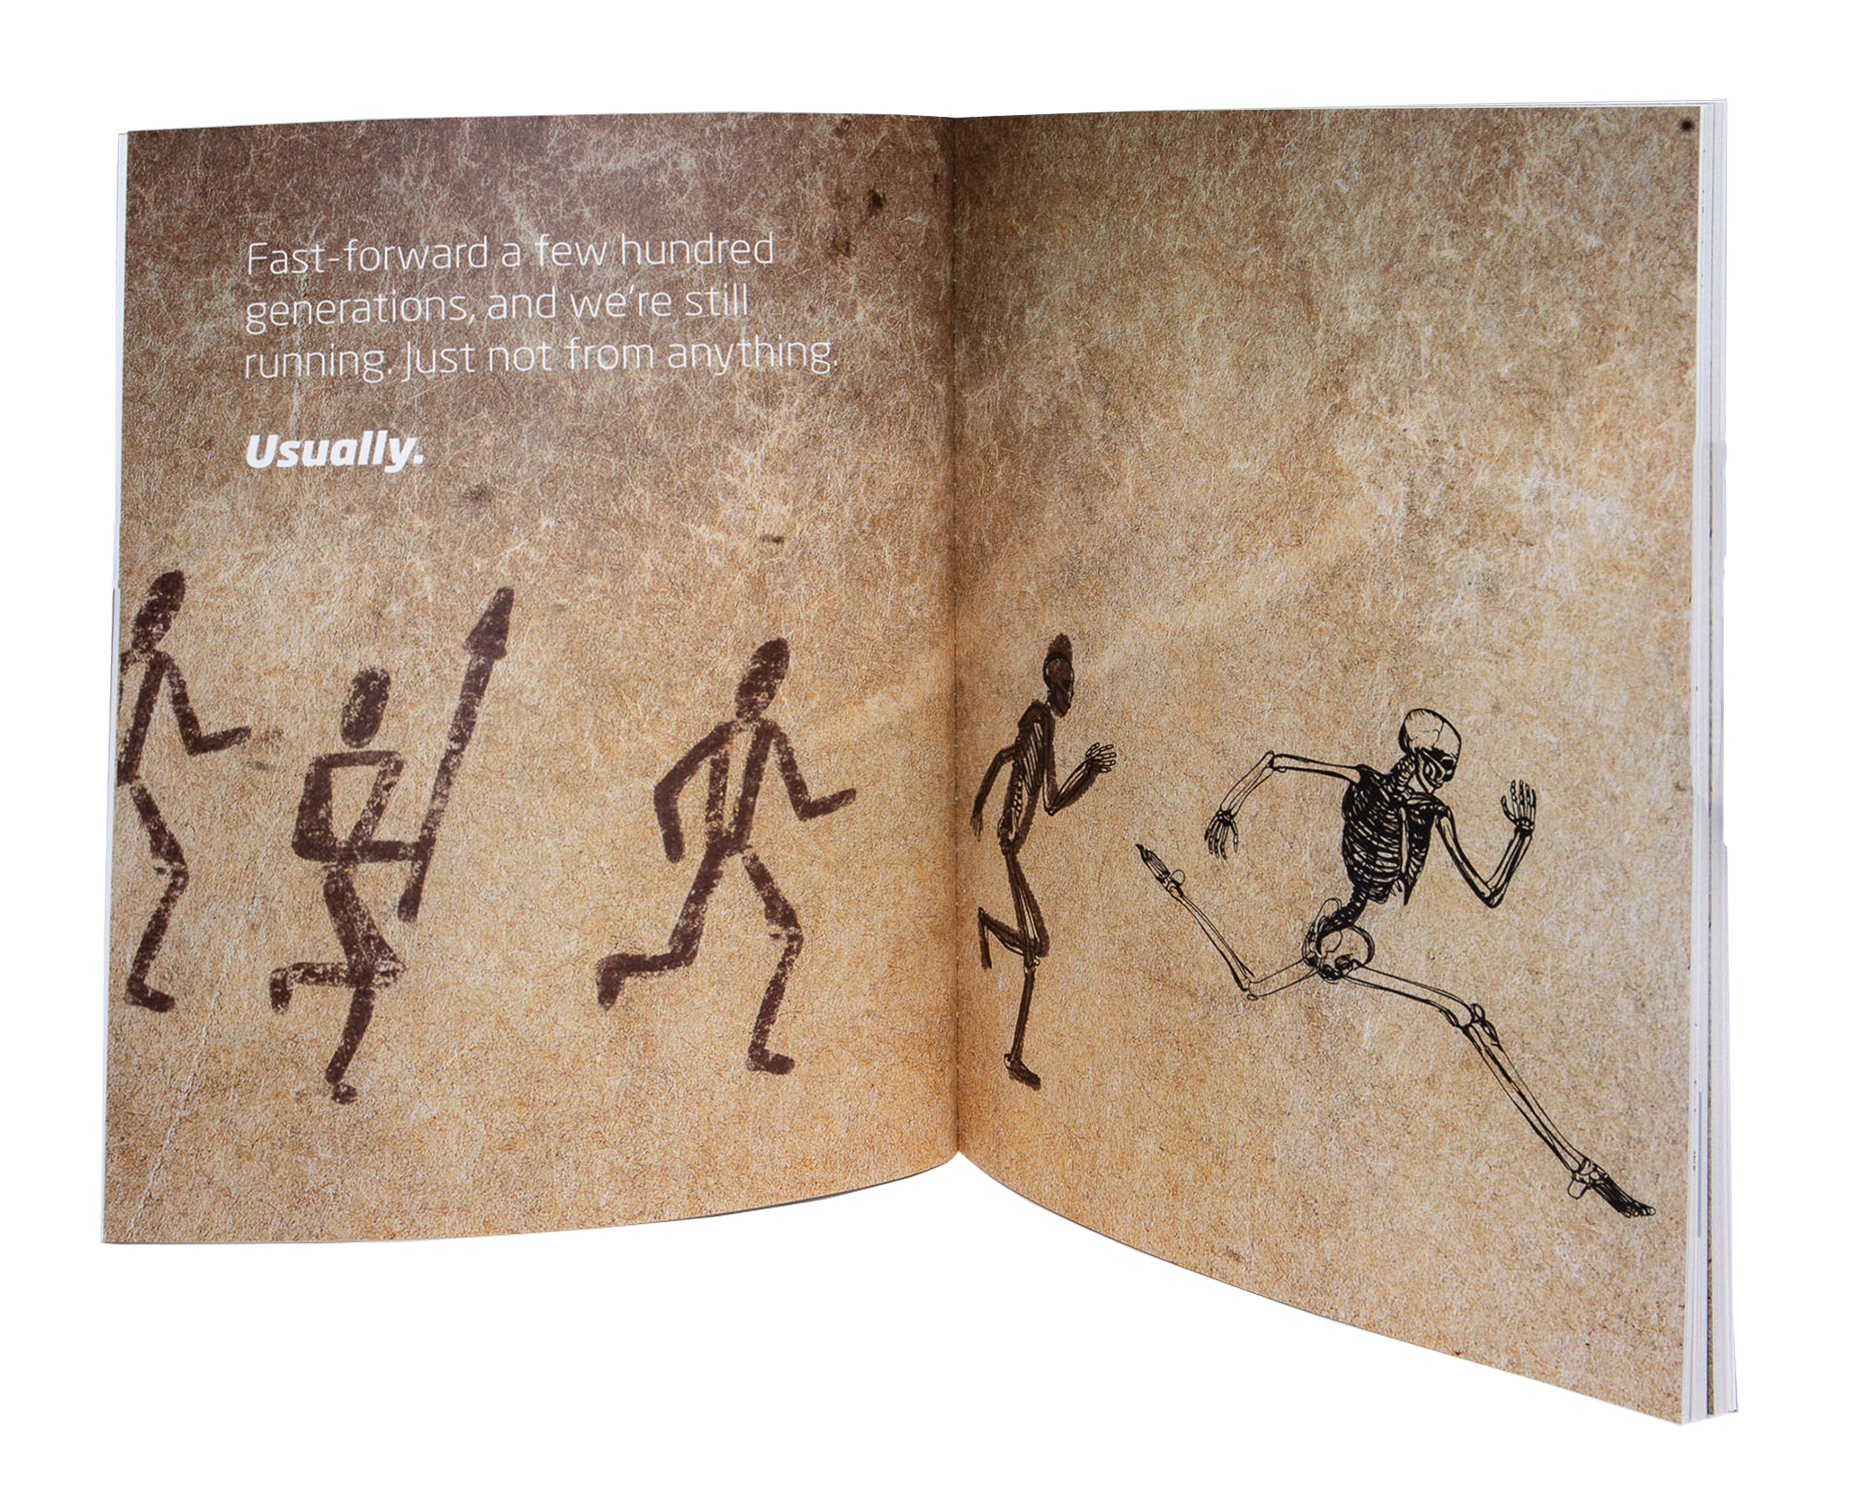 Fast-forward a few hundred
generations, and we're still
running. Just not from anything.
Usually.